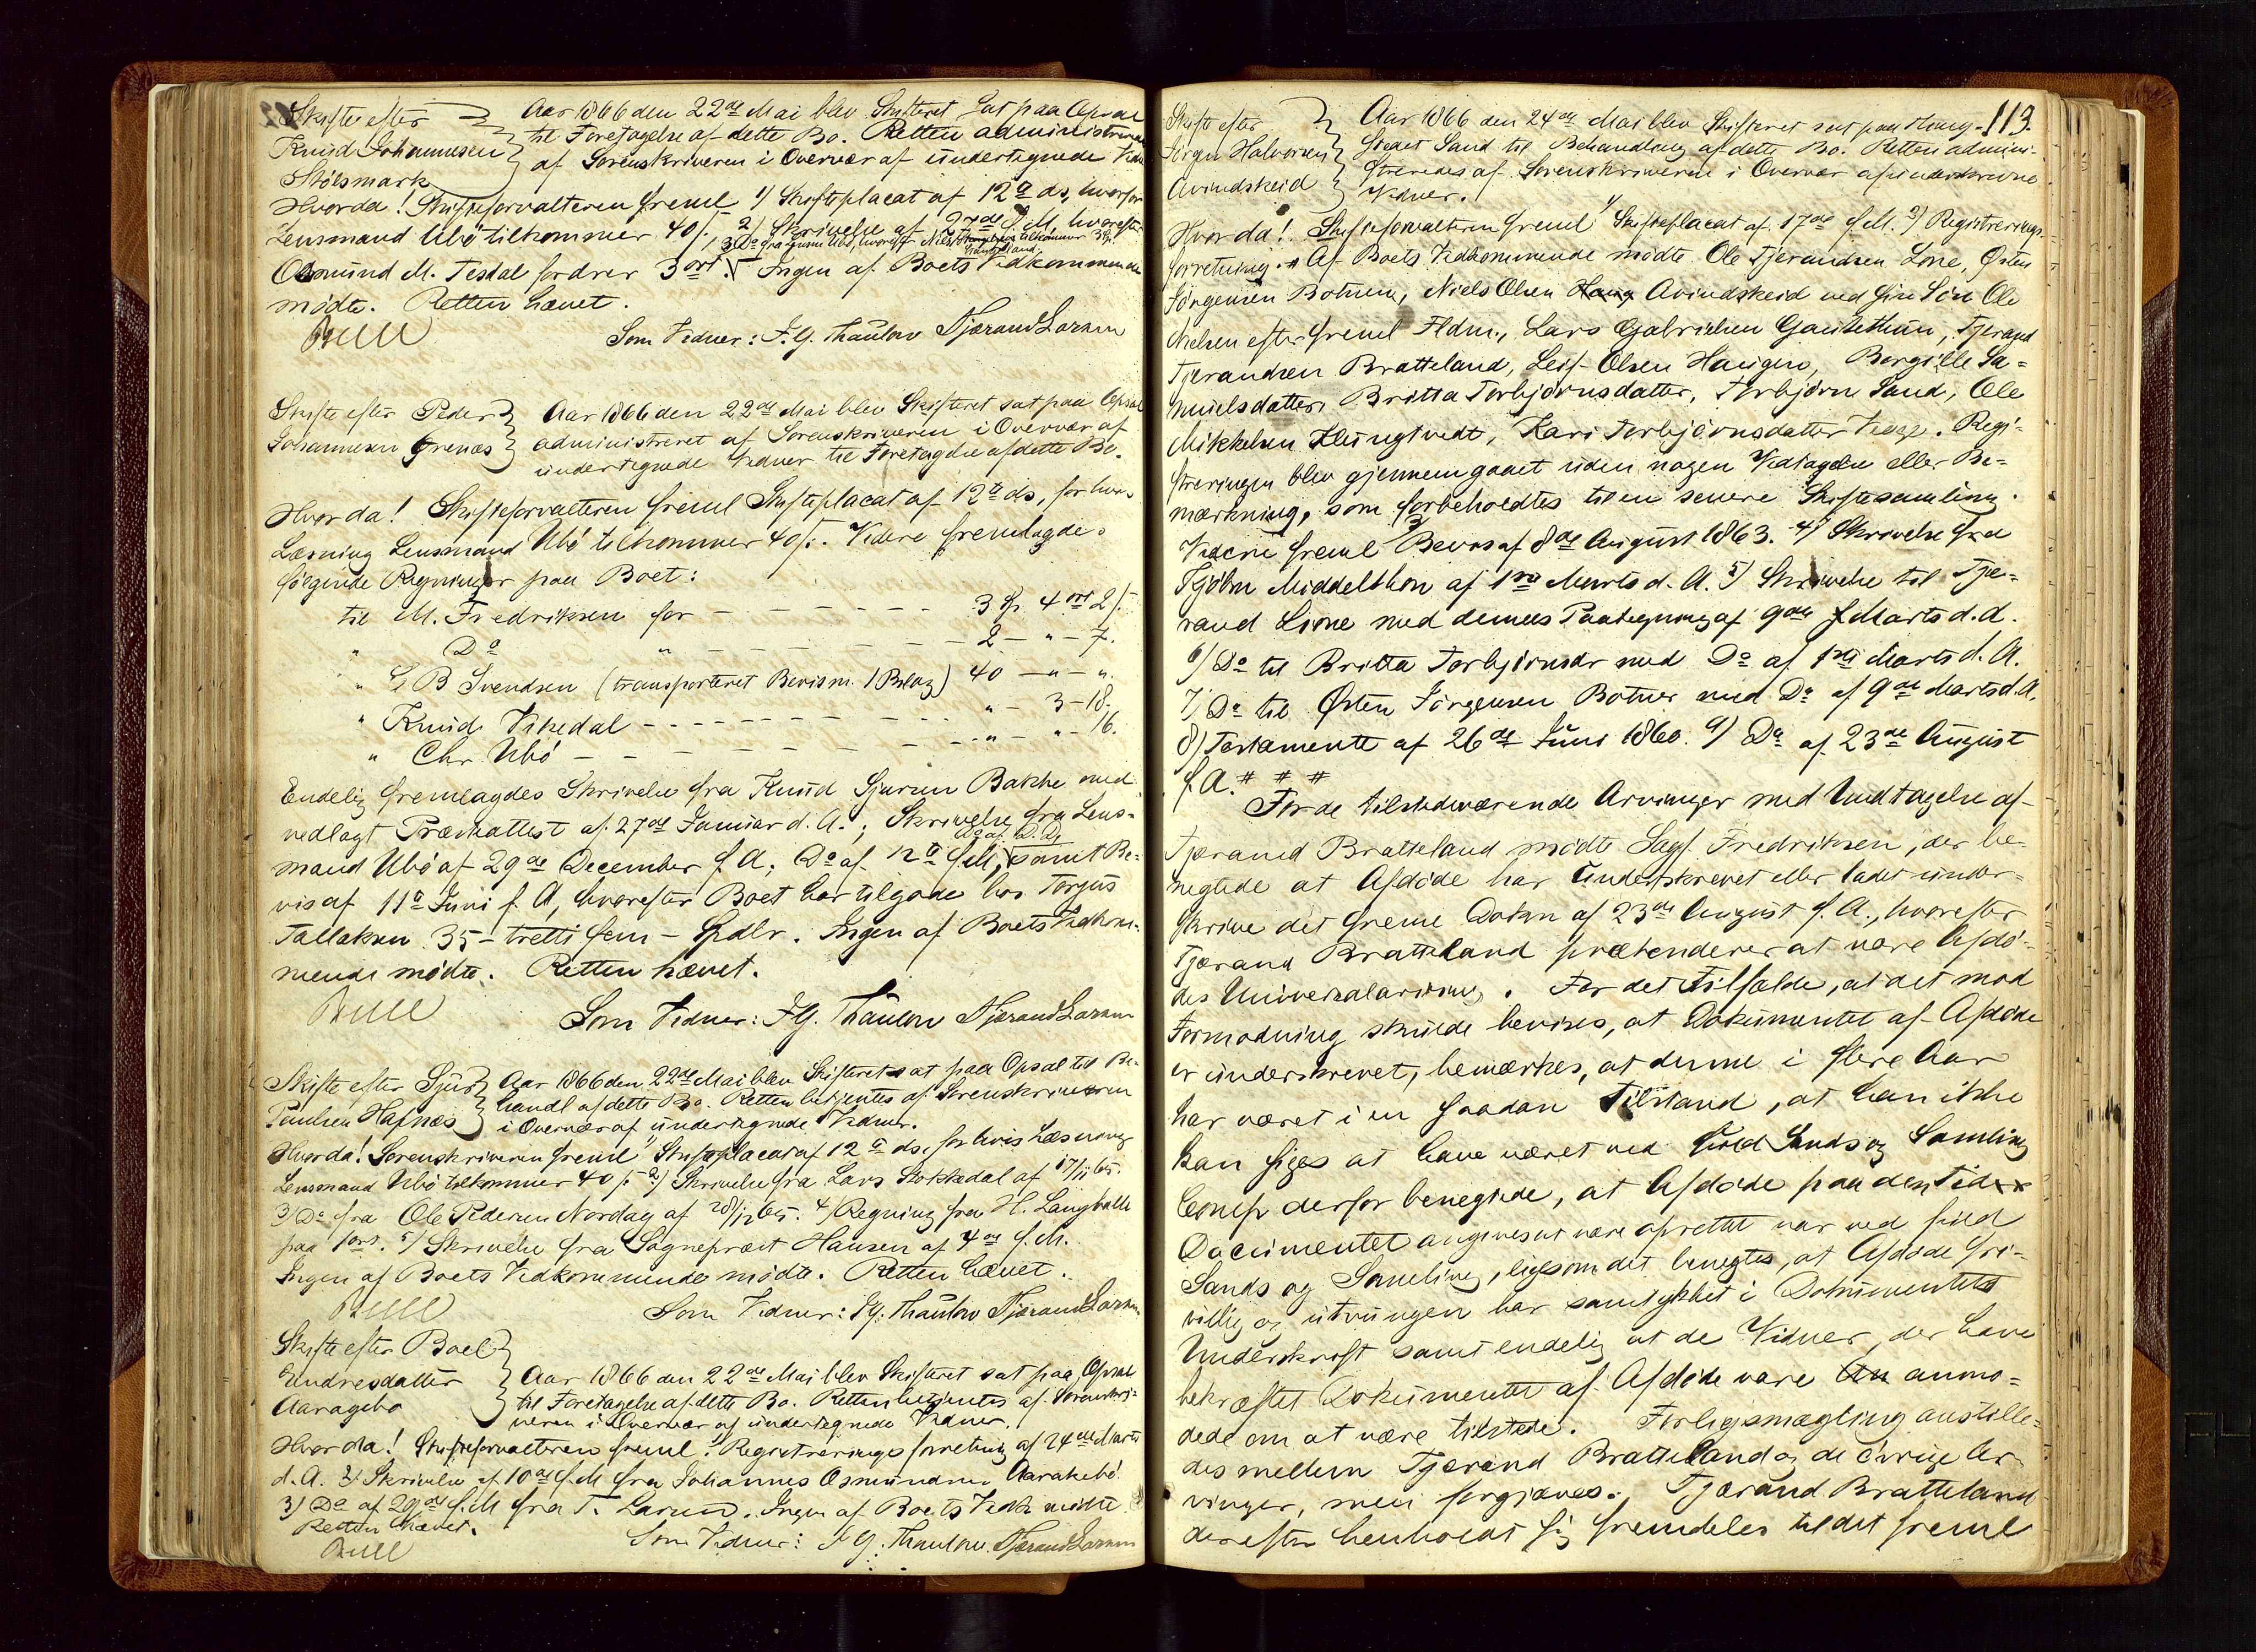 Skifte efter
Knud Johannesen
Stølsmark
Aar 1866 den 22de Mai blev Skifteret sat paa Opsal
til Foretagelse af dette Bo. Retten administreret
af Sorenskriveren i Overvær af undertegnede Vidner
Hvorda! Skifteforvalteren freml 1) Skifteplacat af 12te ds, hvorfor
Lensmand Ubø tilkommer 40 /. 2) Skrivelse af f. M. hvorefter
3) Do fra samme Ubø, hvorefter Niels tilkommer
Osmund M. Tesdal fordrer 3 ort. Ingen af Boets Vedkommende
mødte. Retten hævet.
Bull
Som Vidner: F. G. Thaulow Tjærand Larsen
Skifte efter Peder
Johannesen Grenæs
Aar 1866 den 22de Mai blev Skifteret sat paa Opsal
administreret af Sorenskriveren i Overvær af
undertegnede Vidner til Foretagelse af dette Bo.
Hvorda! Skifteforvalteren freml Skifteplacat af 12te ds, for hvis
Læsning Lensmand Ubø tilkommer 40 /. Videre fremlagdes
følgende Regninger paa Boet:
til M. Fredriksen for - - - - - - 3 Sp. 4 ort 2 /.
" Do " - - - - - - 2 - " - 7.
" G B Svendsen (transporteret Bevis m. 1 Bilag) 40 - " - "
" Knud Vikedal - - - - - - - - " - 3 - 18.
" Chr. Ubø - - - - - - - - " - " - 16.
Endelig fremlagdes Skrivelse fra Knud Sjursen Bakke med
vedlagt Præsteattest af 27de Januar d. A.; Skrivelse fra Lens-
Do af D. D.
mand Ubø af 29de December f. A; Do af 12te f. M, samt Be-
vis af 11te Juni f. A, hvorefter Boet har tilgode hos Torgus
Tallaksen 35 - tretti fem - Spdlr. Ingen af Boets Vedkom-
mende mødte. Retten hævet.
Bull
Som Vidner: F. G. Thaulow Tjærand Larsen
Skifte efter Sjur
Paulsen Hafnæs
Aar 1866 den 22de Mai blev Skifteret sat paa Opsal til Be-
handl af dette Bo. Retten betjentes af Sorenskriveren
i Overvær af undertegnede Vidner.
Hvorda! Sorenskriveren freml 1) Skifteplacat af 12te ds. for hvis Læsning
Lensmand Ubø tilkommer 40 /. 2) Skrivelse fra Lars Stokkedal af 17/11 65.
3) Do fra Ole Pedersen Nordag af 28/12 65. 4) Regning fra H. Langballe
paa 1 ort. 5) Skrivelse fra Sognepræst Hansen af 4de f. M.
Ingen af Boets Vedkommende mødte. Retten hævet.
Bull
Som Vidner: F. G. Thaulow Tjærand Larsen
Skifte efter Boel
Endresdatter
Aaragebø
Aar 1866 den 22de Mai blev Skifteret sat paa Opsal
til Foretagelse af dette Bo. Retten betjentes af Sorenskri-
veren i Overvær af undertegnede Vidner.
Hvorda! Skifteforvalteren freml. 1) Registreringsforretning af 24de Marts
d. A. 2) Skrivelse af 10de f. M fra Johannes Osmundsen Aarakebø
3) Do af 29de f. M fra T. Larsen. Ingen af Boets Vedk mødte
Retten hævet.
Bull
Som Vidner: F G. Thaulow. Tjærand Larsen
113.
Skifte efter
Jørgen Halvorsen
Avindskeid
Aar 1866 den 24de Mai blev Skifteret sat paa Thing-
stedet Sand til Behandling af dette Bo. Retten admini-
streredes af Sorenskriveren i Overvær af underskrevne
Vidner.
Hvorda! Skifteforvalteren freml 1) Skifteplacat af 17de f. M. 2) Registrerings-
forretning. Af Boets Vedkommende mødte Ole Tjerandsen Lone, Østen
Jørgensen Botnen, Niels Olsen Haug Avindskeid ved sin Søn Ole
Nielsen efter freml Fldm., Lars Gabrielsen Gautethun, Tjerand
Tjerandsen Bratteland, Leif Olsen Haugen, Borgille Sa-
muelsdatter, Britta Torbjørnsdatter, Torbjørn Sand, Ole
Mikkelsen Klungtvedt, Kari Torbjørnsdatter. Regi-
streringen blev gjennemgaaet uden nogen Vedtagelse eller Be-
mærkning, som forbeholdtes til en senere Skiftesamling.
Videre freml 3) Bevis af 8de August 1863. 4) Skrivelse fra
Tjøbn Middelthon af 1ste Marts d. A. 5) Skrivelse til Tje-
rand Lone med dennes Paategning af 9de Marts d. A.
6) Do til Britta Torbjørnsdr med Do af 1ste Marts d. A.
7) Do til Østen Jørgensen Botnen med Do af 9de Marts d. A.
8) Testamente af 26de Juni 1860. 9) Do af 23de August
f. A. # # #
For de tilstedeværende Arvinger med Undtagelse af
Tjærand Bratteland mødte Sagf. Fredriksen, der be-
negtede at Afdøde har underskrevet eller ladet under-
skrive det freml Dokm af 23de August f. A., hvorefter
Tjærand Bratteland prætenderer at være Afdø-
des Universalarving. For det Tilfælde, at det mod
Formodning skulde bevises, at Dokumentet af Afdøde
er underskrevet, bemærkes, at denne i flere Aar
har været i en saadan Tilstand, at han ikke
kan siges at have været ved fuld Sands og Samling
Comp. derfor benegtede, at Afdøde paa den Tid
Documentet angives at være oprettet var ved fuld
Sands og Samling, ligesom det benegtes, at Afdøde fri-
villig og utvungen har samtykket i Dokumentets
Underskrift samt endelig at de Vidner, der have
bekræftet Dokumentet af Afdøde vare anmo-
dede om at være tilstede. Forligsmægling anstille-
des mellem Tjærand Bratteland og de øvrige Ar-
vinger, men forgjæves. Tjærand Bratteland
derefter henholdt sig fremdeles til det freml